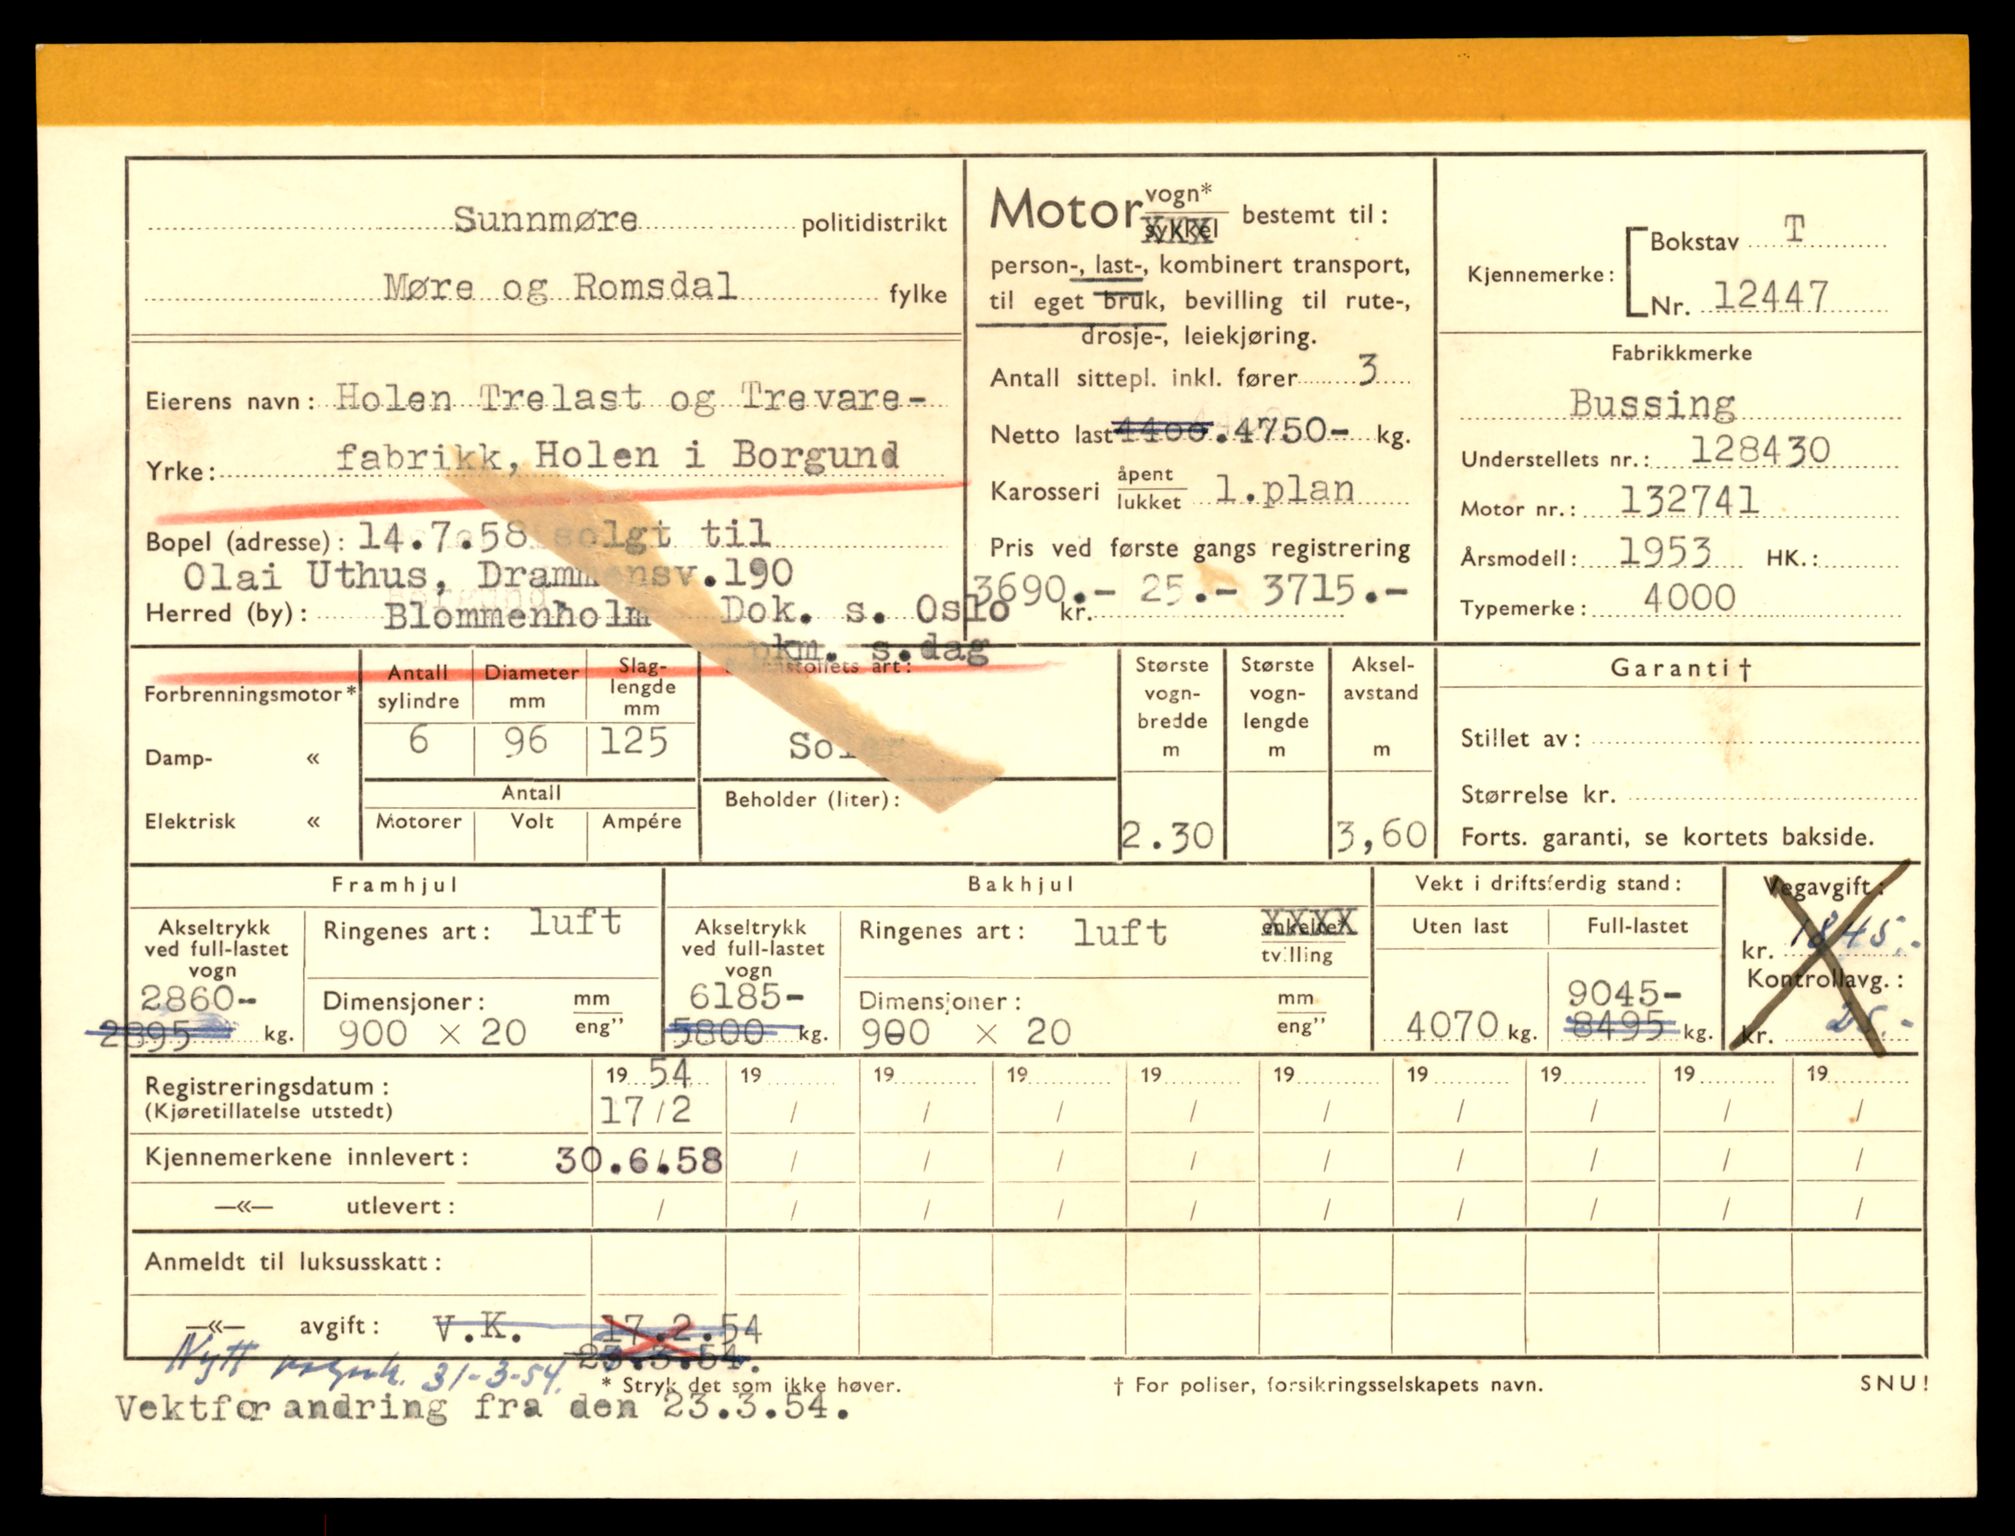 Sunnmøre politidistrikt
Møre og Romsdal fylke
Eierens navn: Holen Trelast og Trevare-
Yrke: fabrikk, Holen i Borgund
Bopel (adresse): 14.7.58 solgt til
Olai Uthus, Drammensv.190
Herred (by): Blommenholm Dok. s. Oslo
pkm. s.dag
Motor vogn* sykkel bestemt til:
person-, last-, kombinert transport,
til eget bruk, bevilling til rute-,
drosje-, leiekjøring.
Antall sittepl. inkl. fører 3
Netto last 4400 .4750- kg.
Karosseri åpent lukket l.plan
Pris ved første gangs registrering
3690.- 25.- 3715.-
kr.
Kjennemerke: Bokstav T
Nr. 12447
Fabrikkmerke
Bussing
Understellets nr.: 128430
Motor nr.: 132741
Årsmodell: 1953 HK.:
Typemerke: 4000
Forbrenningsmotor*
Damp- «
Elektrisk «
Antall sylindre Diameter mm Slag-lengde mm
6 96 125
Antall
Motorer Volt Ampére
art:
Soler
Beholder (liter):
Største vogn-bredde m
2.30
Største vogn-lengde m
Aksel-avstand m
3,60
Garanti †
Stillet av:
Størrelse kr.
Forts. garanti, se kortets bakside.
Framhjul
Akseltrykk ved full-lastet vogn
2860-
2895 kg.
Ringenes art: luft
Dimensjoner: mm eng”
900 × 20
Bakhjul
Akseltrykk ved full-lastet vogn
6185-
5800 kg.
Ringenes art: luft enkelte* tvilling
Dimensjoner: mm eng”
900 × 20
Vekt i driftsferdig stand:
Uten last Full-lastet
9045-
4070 kg. 8495 kg.
Vegavgift:
kr. 1845.-
Kontrollavg.:
kr. 25.-
Registreringsdatum: 19 54 19 19 19 19 19 19 19 19 19
(Kjøretillatelse utstedt) 17/2 / / / / / / / / /
Kjennemerkene innlevert: 30.6.58 / / / / / / / / /
—«— utlevert: / / / / / / / / / /
Anmeldt til luksusskatt:
—«— avgift: V.K. 17.2.54
23.3.54.
Nytt vognk. 31-3-54.
* Stryk det som ikke høver. † For poliser, forsikringsselskapets navn. SNU!
Vektforandring fra den 23.3.54.